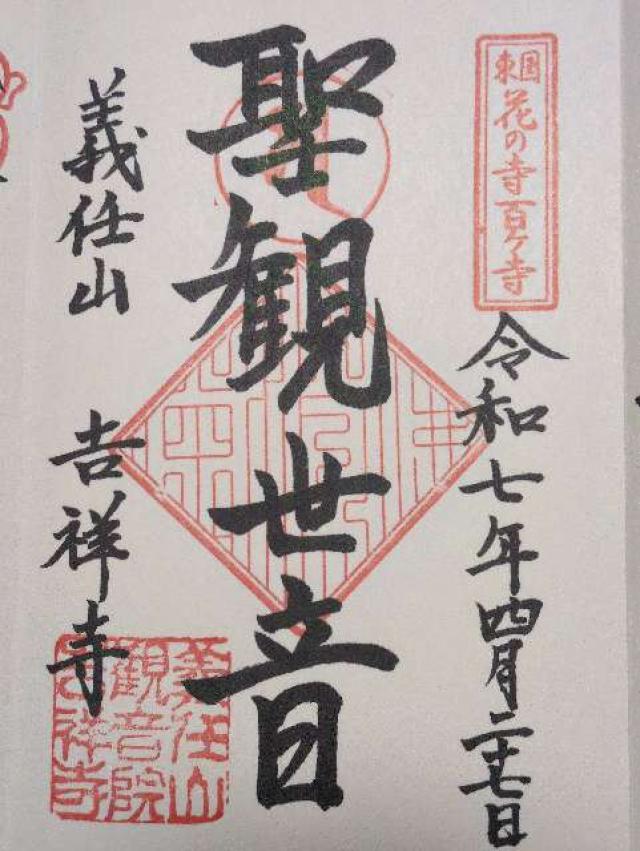 東国花の寺百ケ寺
令和七年四月二十七日
聖観世音
義任山 吉祥寺
義任山
観音院
吉祥寺